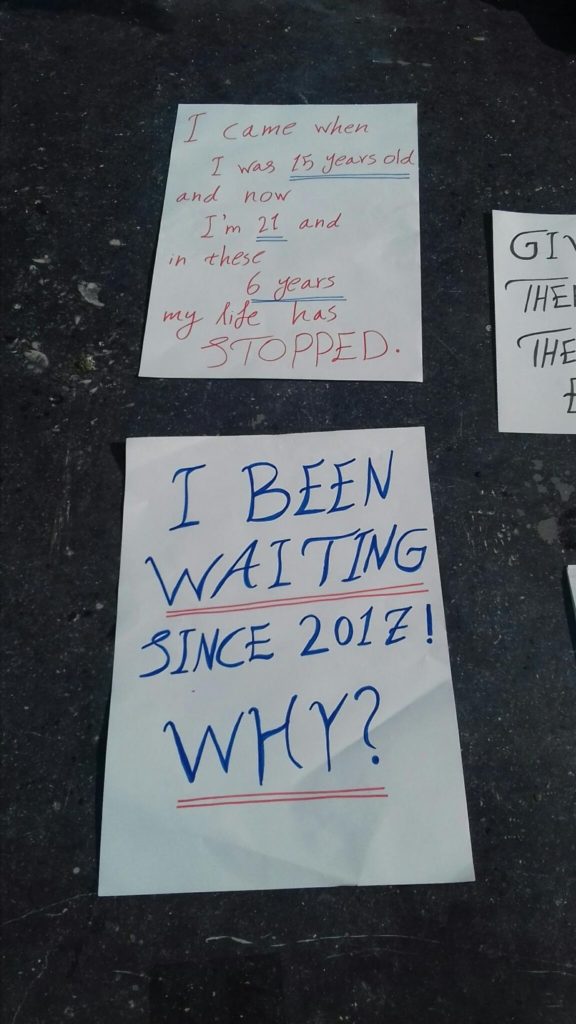 I came when
I was 15 years old
and now
I'm 21 and
in these
6 years
my life has
STOPPED.
I BEEN
WAITING
SINCE 2017!
WHY?